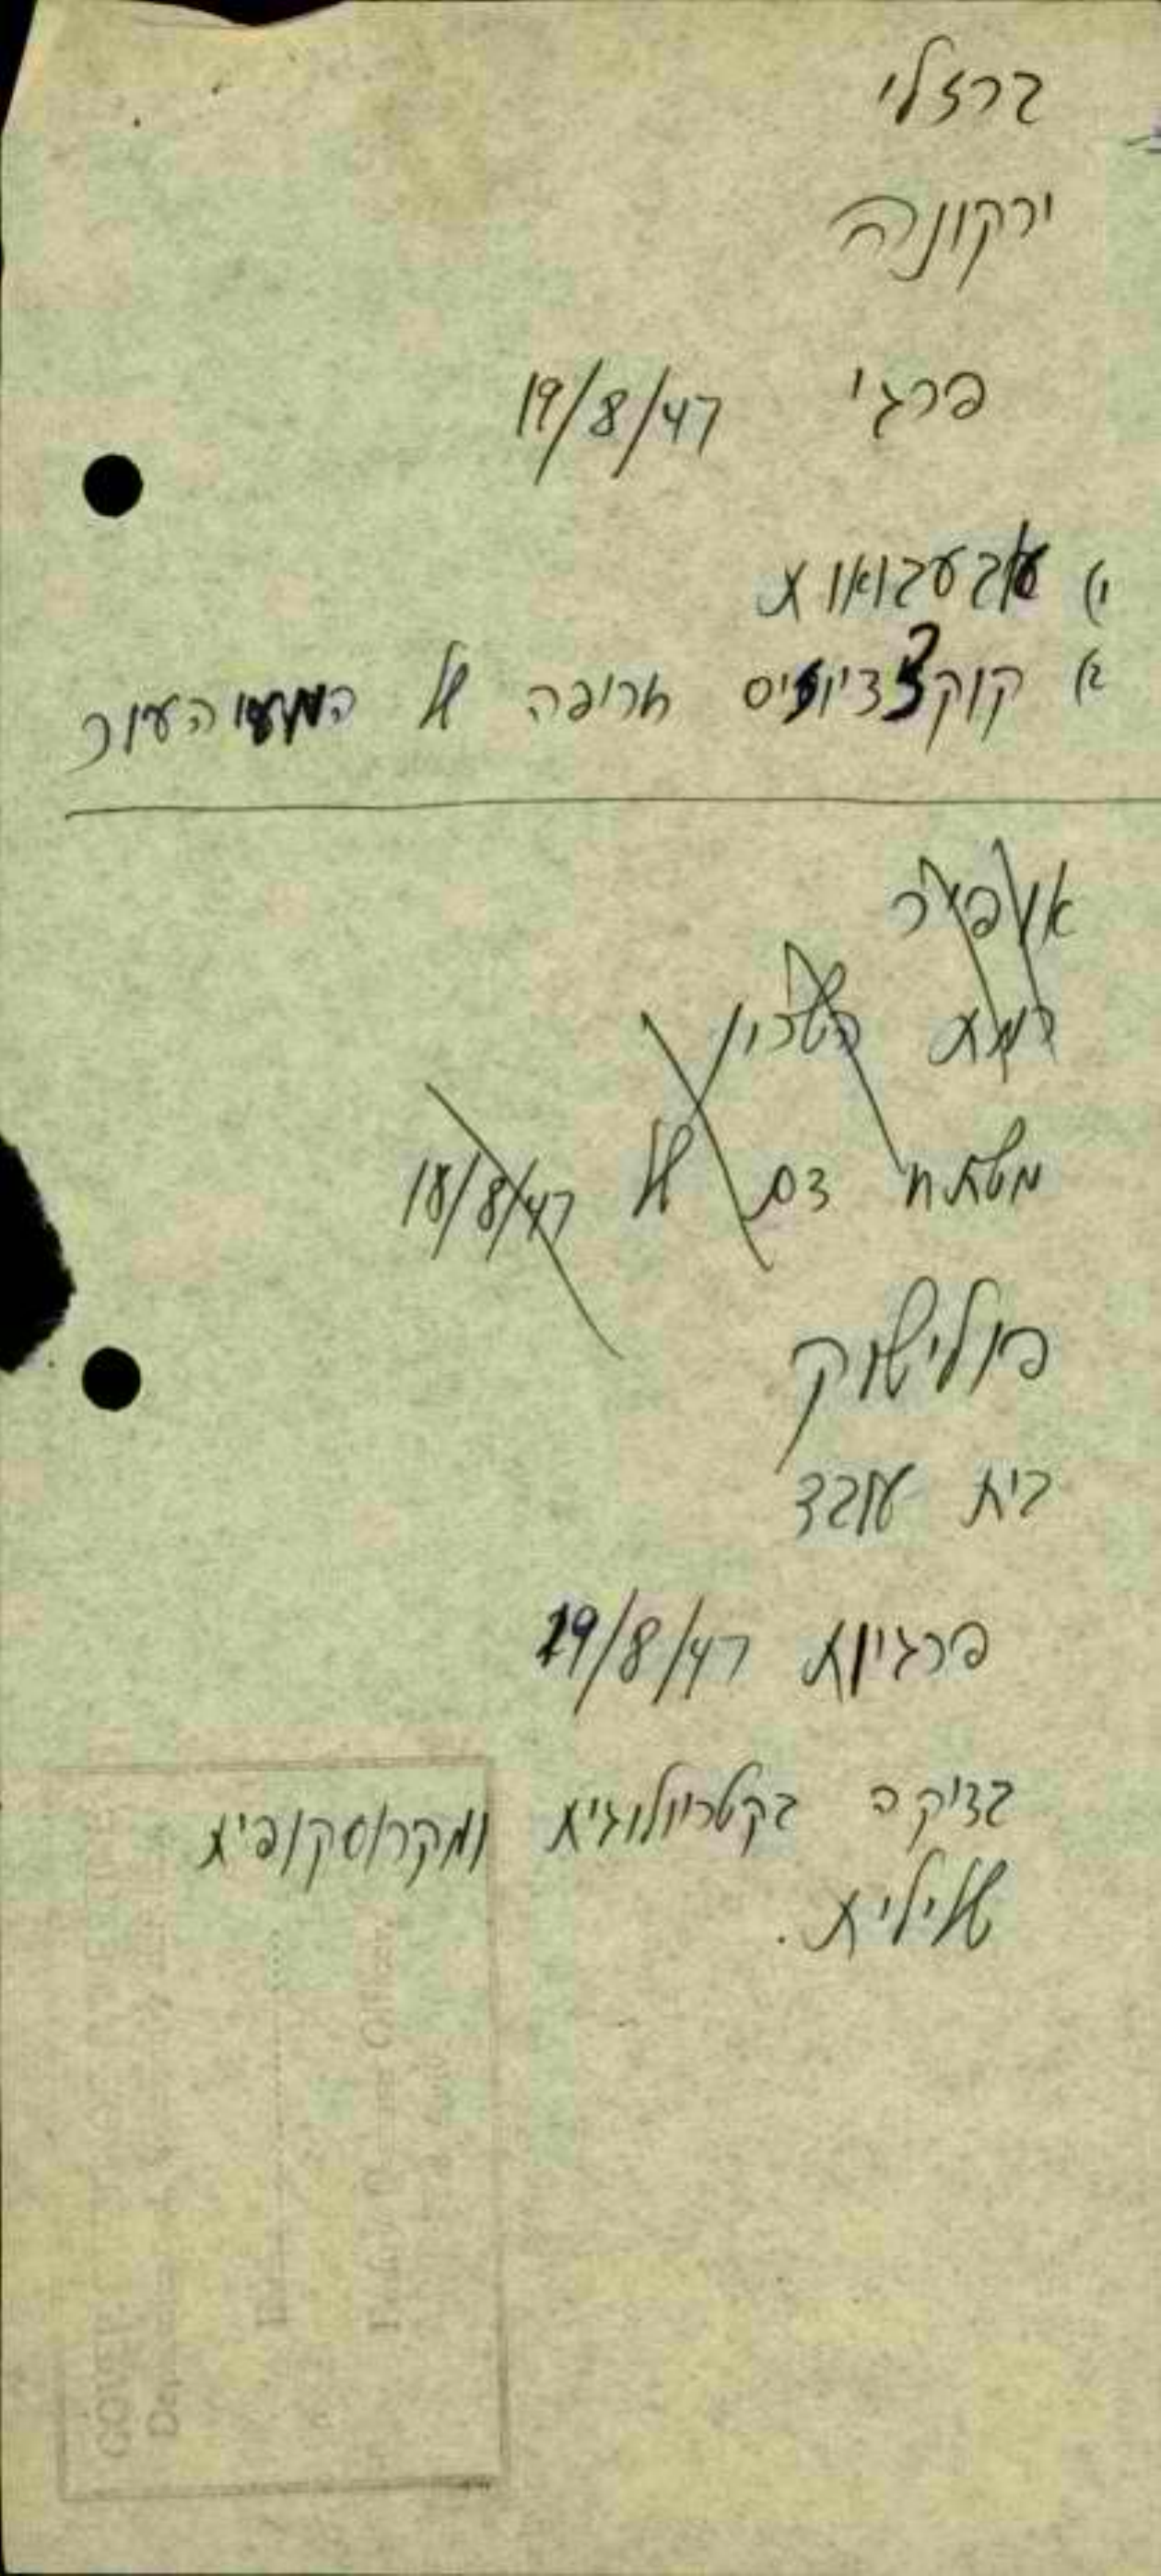 ברזלי
ירקונה
פרגי 19/8/47
1) אבעבועות
2) קוקצידיוזיס חריפה של המעי העור
אופיר
רמת השרון
משטח דם של 18/8/47
פולישוק
בית עובד
פרגיות 19/8/47
בדיקה בקטריולוגית ומקרוסקופית
שלילית.